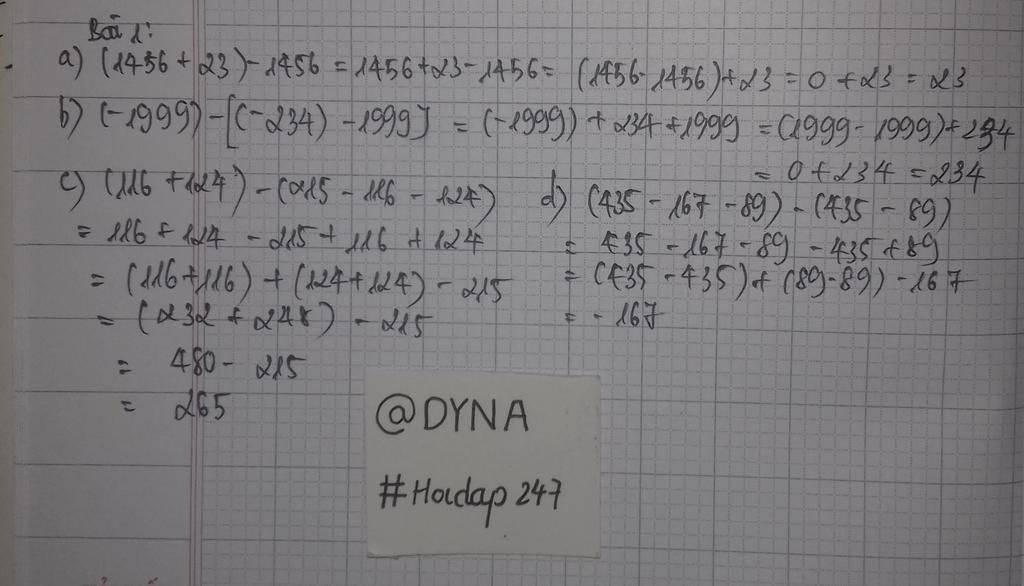 Bài 1:
a) (1456 + 23) - 1456 = 1456 + 23 - 1456 = (1456 - 1456) + 23 = 0 + 23 = 23
b) (-1999) - [(-234) - 1999] = (-1999) + 234 + 1999 = (1999 - 1999) + 234
= 0 + 234 = 234
c) (116 + 124) - (215 - 116 - 124)
= 116 + 124 - 215 + 116 + 124
= (116 + 116) + (124 + 124) - 215
= (232 + 248) - 215
= 480 - 215
= 265
d) (435 - 167 - 89) - (435 - 89)
= 435 - 167 - 89 - 435 + 89
= (435 - 435) + (89 - 89) - 167
= - 167
@DYNA
#Hoidap247